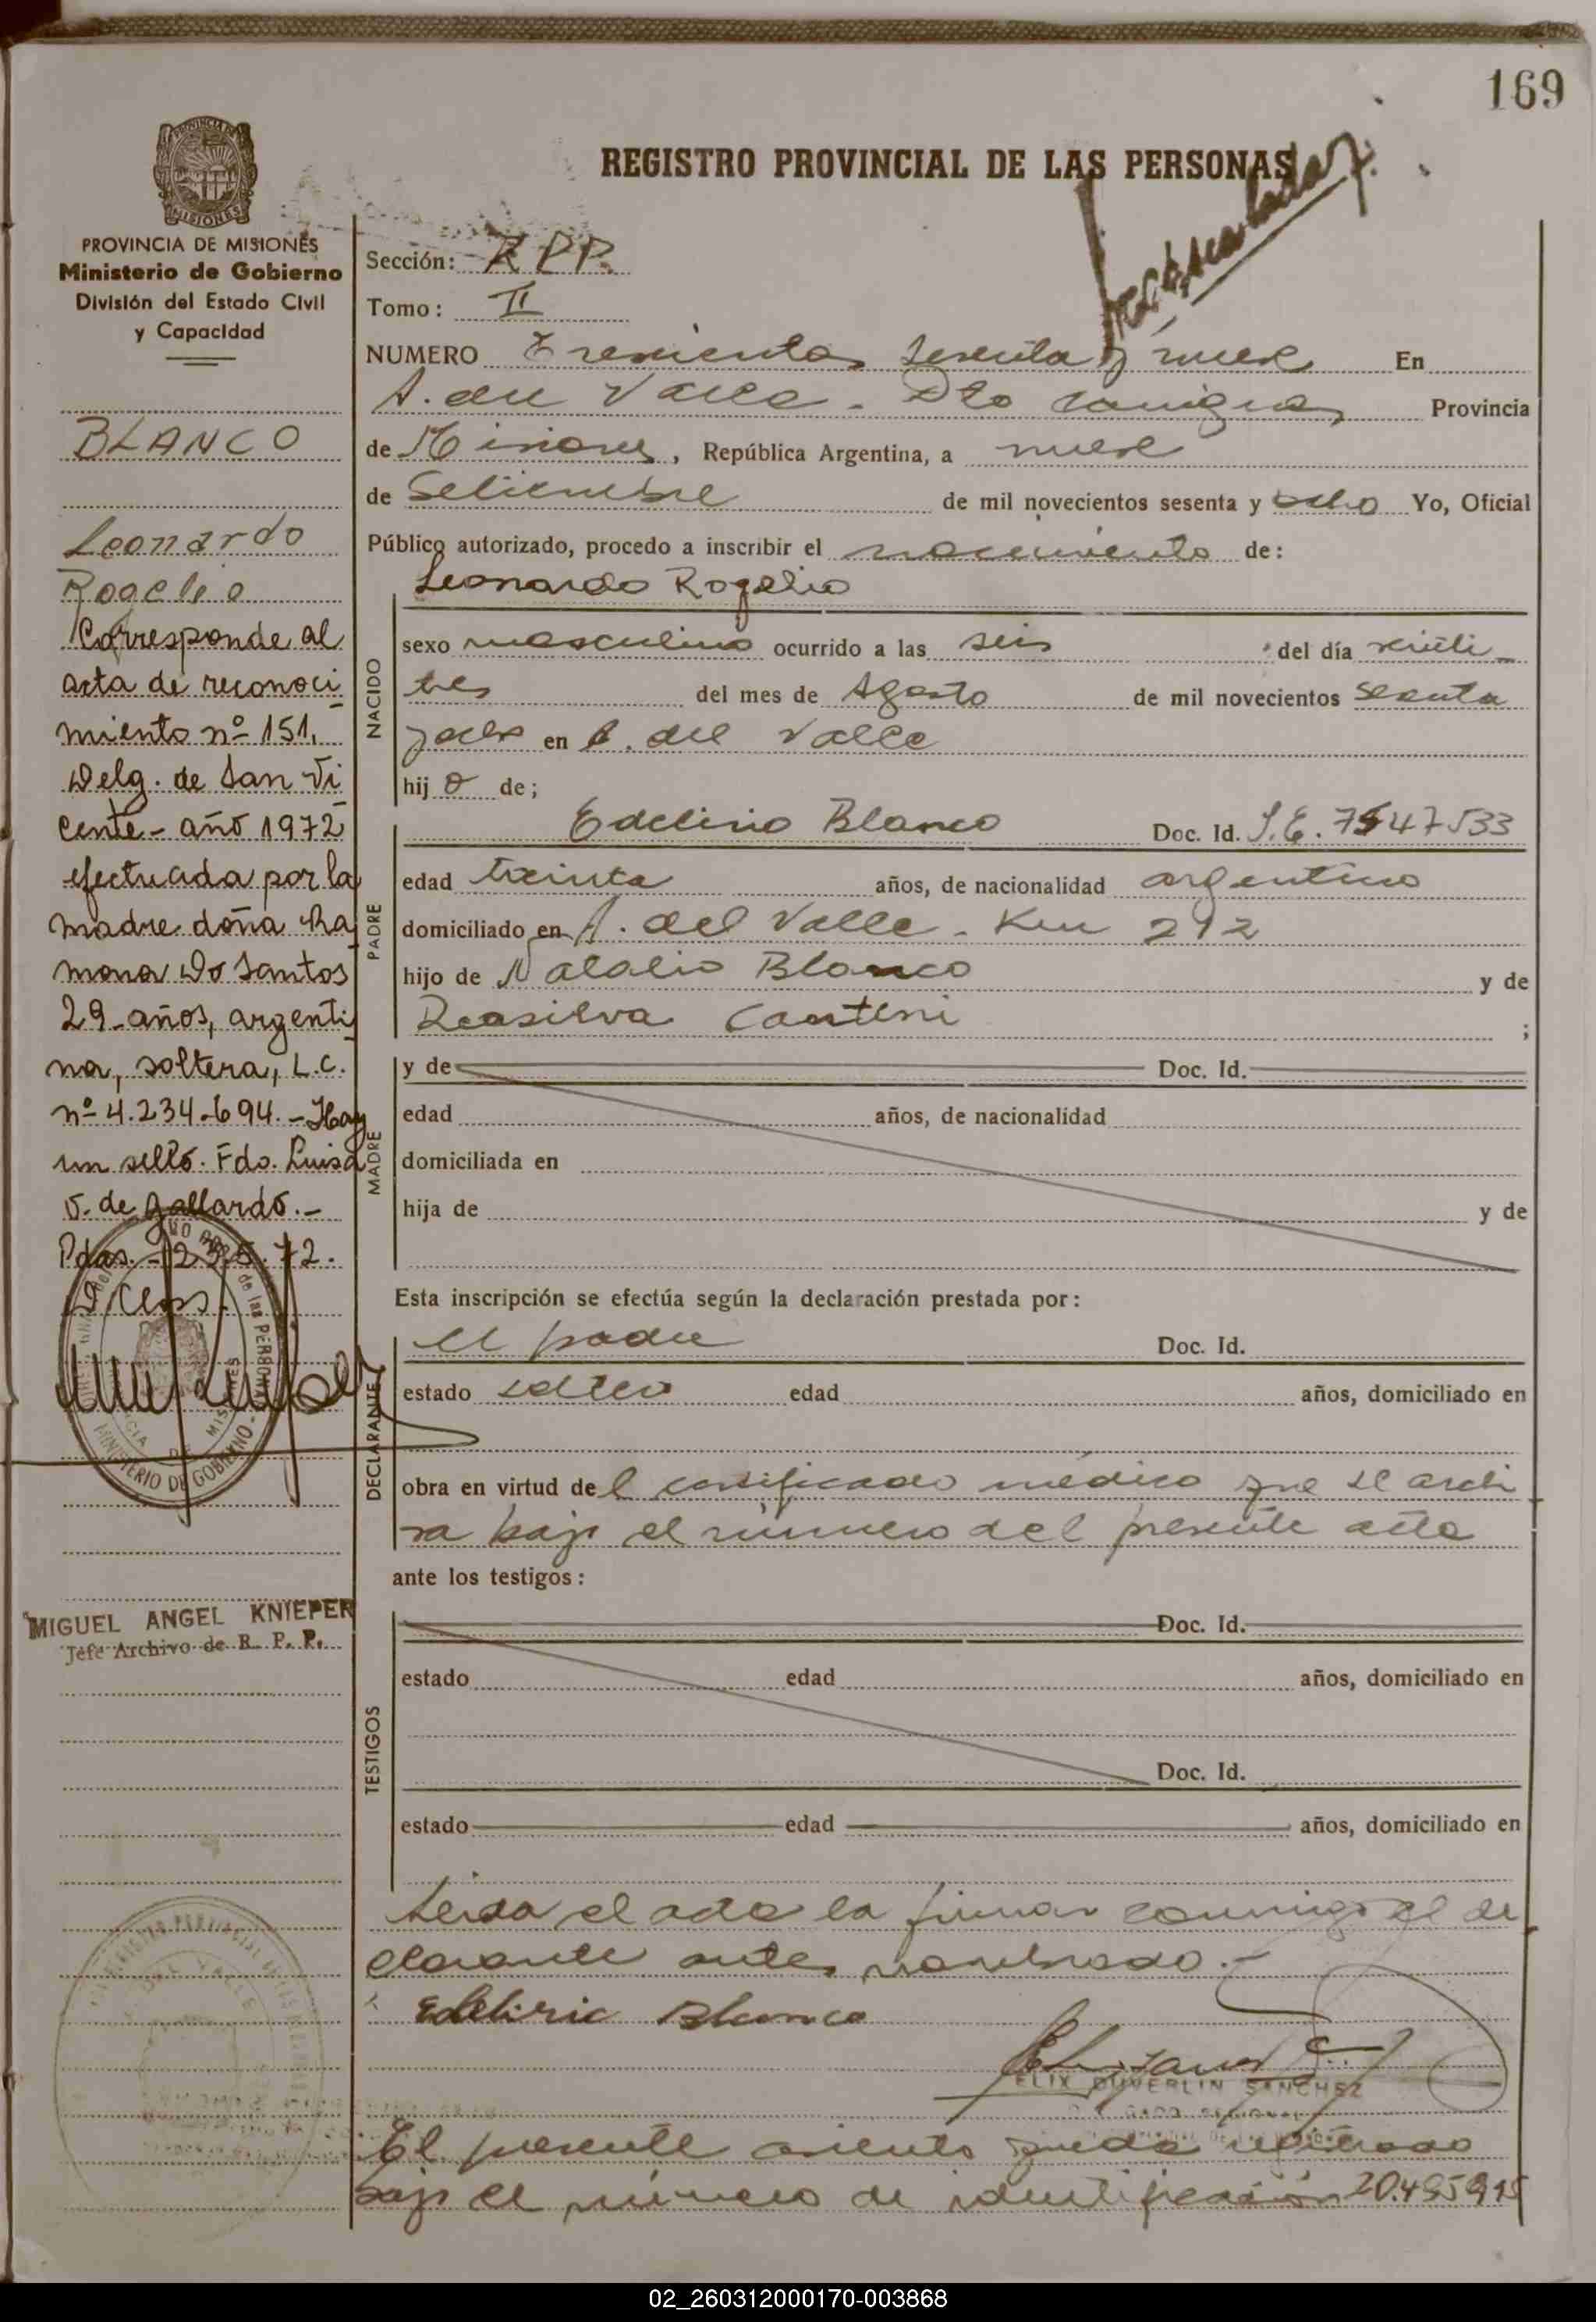 169
REGISTRO PROVINCIAL DE LAS PERSONAS
PROVINCIA DE MISIONES
Ministerio de Gobierno
División del Estado Civil
y Capacidad
BLANCO
Leonardo
Rogelio
Corresponde al
acta de reconoci
miento nº 151,
Delg. de San Vi
cente - año 1972
efectuada por la
madre doña Ra
mona Do Santos
29 años, argenti
na, soltera, L.C.
nº 4.234.694. - Hay
un sello. Fdo. Luisa
v. de Gallardo. -
Pdas.
MIGUEL ANGEL KNIEPER
Jefe Archivo de R. P. P.
Sección: R P P.
Tomo: II
NUMERO Trescientos sesenta y nueve En
A. del Valle - Dto Cainguas Provincia
de Misiones, República Argentina, a nueve
de Setiembre de mil novecientos sesenta y ocho Yo, Oficial
Público autorizado, procedo a inscribir el nacimiento de:
Leonardo Rogelio
NACIDO
sexo masculino ocurrido a las seis del día veinti
tres del mes de Agosto de mil novecientos sesenta
y ocho en A. del Valle
hij o de;
PADRE
Edelirio Blanco Doc. Id.
edad treinta años, de nacionalidad argentino
domiciliado en A. del Valle - Km 292
hijo de Natalio Blanco y de
;
MADRE
y de Doc. Id.
edad años, de nacionalidad
domiciliada en
hija de y de
Esta inscripción se efectúa según la declaración prestada por:
DECLARANTE
el padre Doc. Id.
estado soltero edad años, domiciliado en
obra en virtud del certificado médico que se archi
va bajo el número del presente acta
ante los testigos:
TESTIGOS
Doc. Id.
estado edad años, domiciliado en
Doc. Id.
estado edad años, domiciliado en
Leida el acta la firman conmigo el de
clarante antes nombrado. -
Edelirio Blanco
FELIX DUVERLIN SANCHEZ
El presente asiento queda registrado
bajo el número de identificación 20.495915
02_260312000170-003868